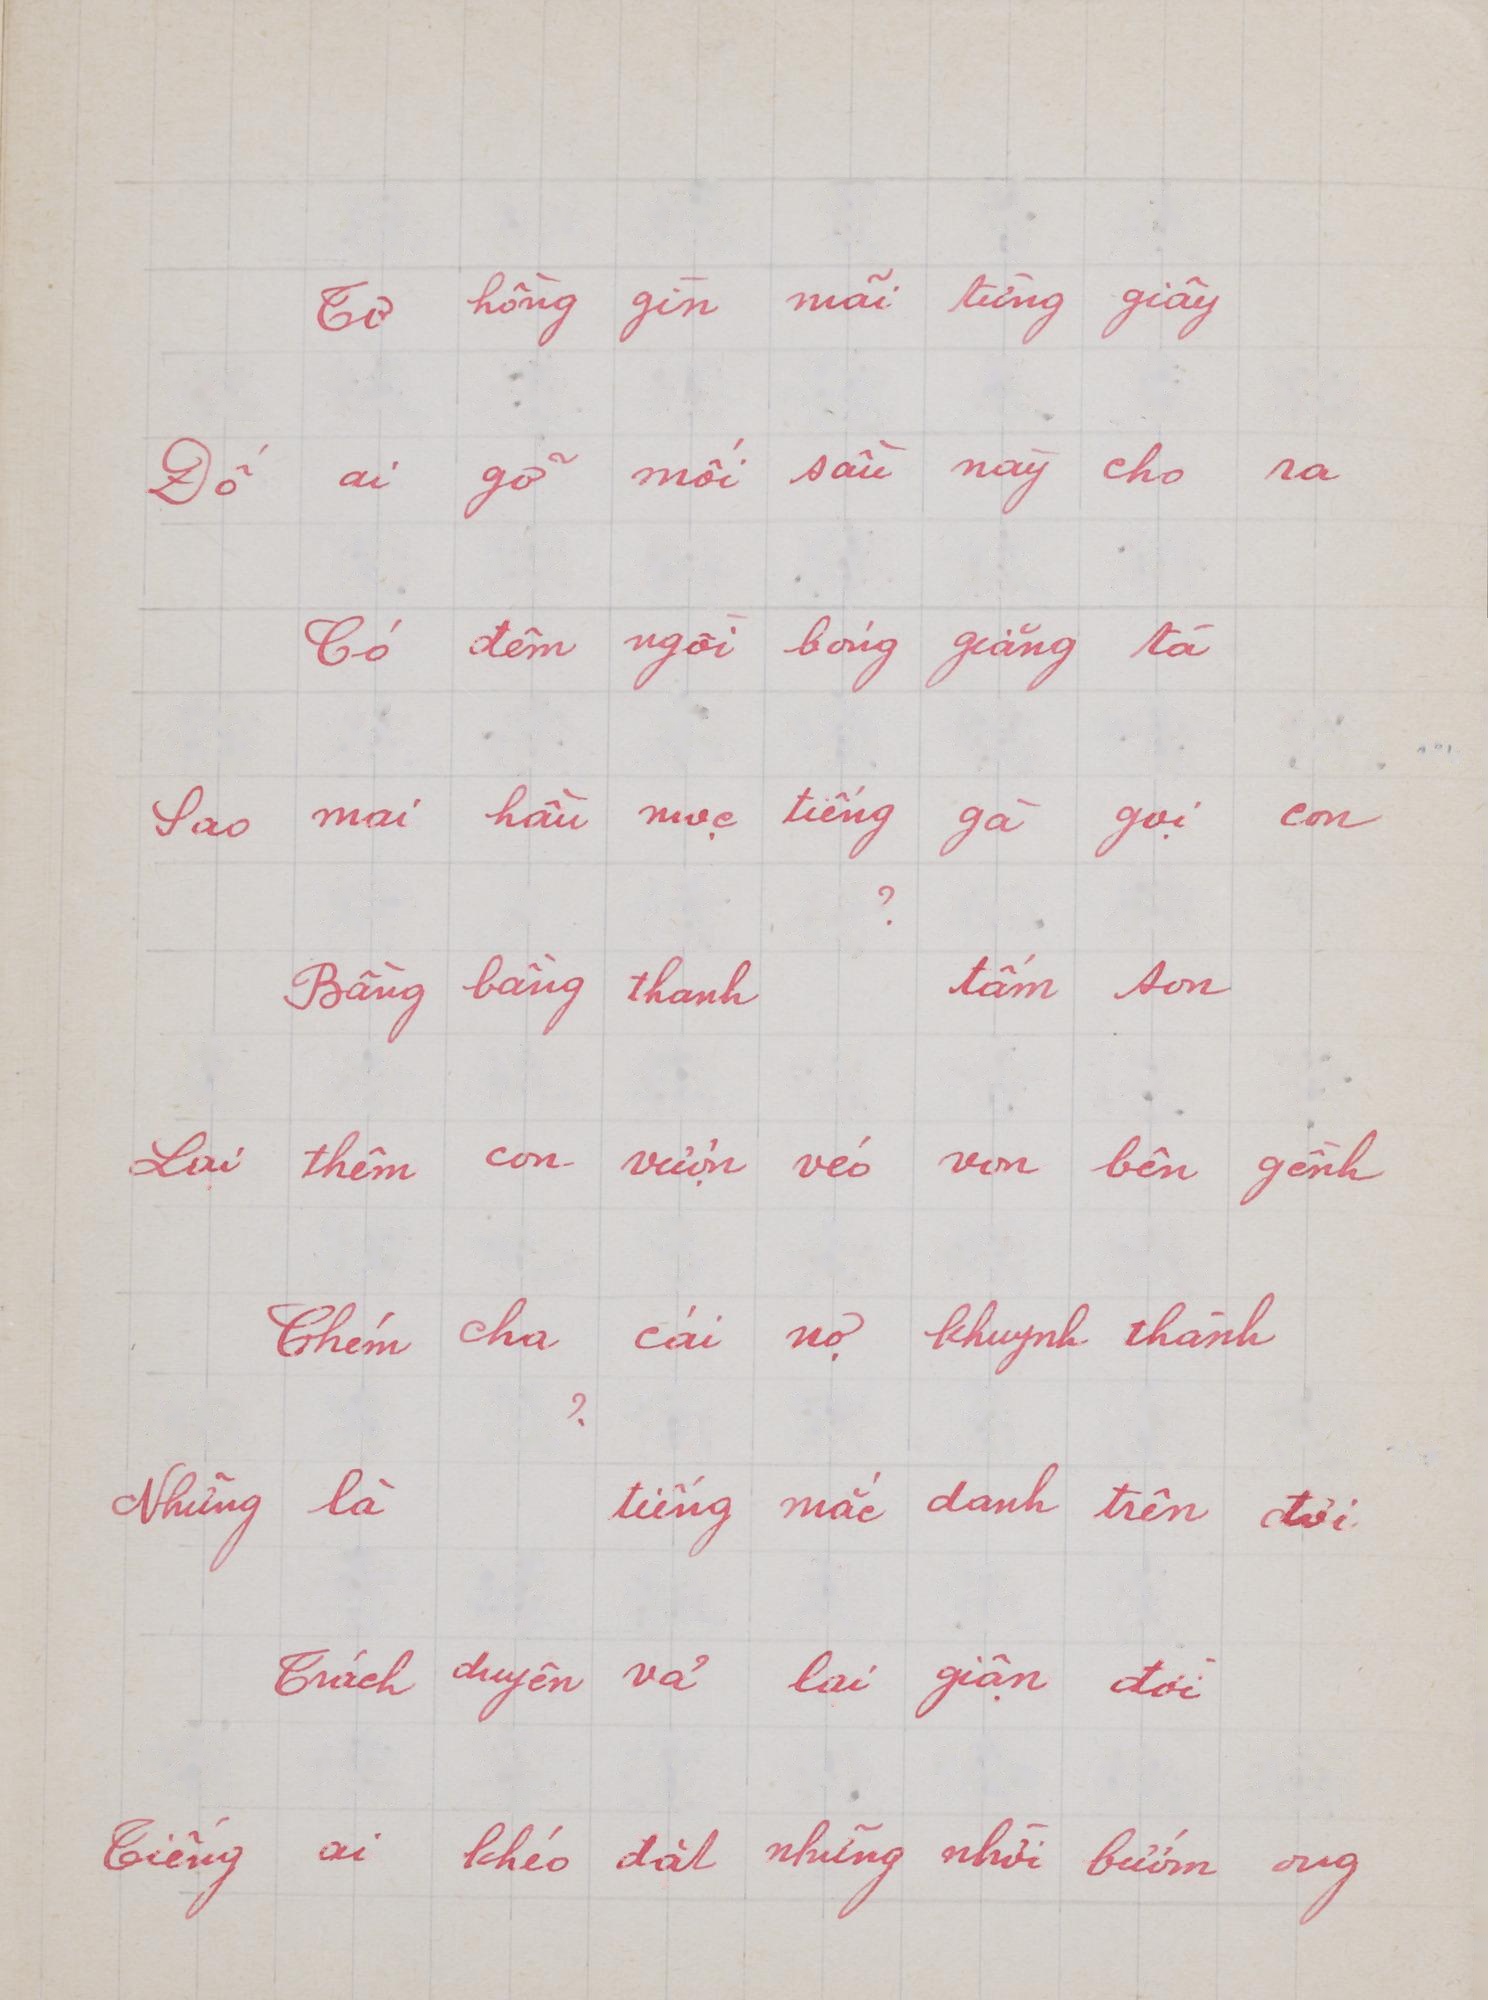 Tơ hồng gìn mãi từng giây
Đố ai gỡ mối sầu này cho ra
Có đêm ngồi bóng giăng tà
Sao mai hầu mọc tiếng gà gọi con
?
Bâng bâng thanh tấm son
Lại thêm con vượn véo von bên gềnh
Chém cha cái nợ khuynh thành
?
Những là tiếng mắc danh trên đời
Trách duyên vả lại giận đời
Tiếng ai khéo đặt những nhời bướm ong